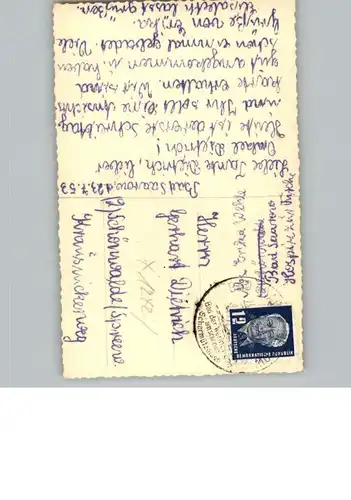 Bad Saarow, d. 23.7.53
Liebe Tante Dietrich, lieber
Onkel Dietrich!
Heute ist der erste Schreibtag
und Ihr sollt eine Ansichts-
karte erhalten. Wir sind
gut angekommen u. haben
schon einmal gebadet. Viele
Grüße von Erika.
Elisabeth lässt grüßen.
Abs. Erika
Bad Saarow
Hospiz
Herrn
Gerhard Dietrich
Schönwalde/Spreew.
12
DEUTSCHE
DEMOKRATISCHE REPUBLIK